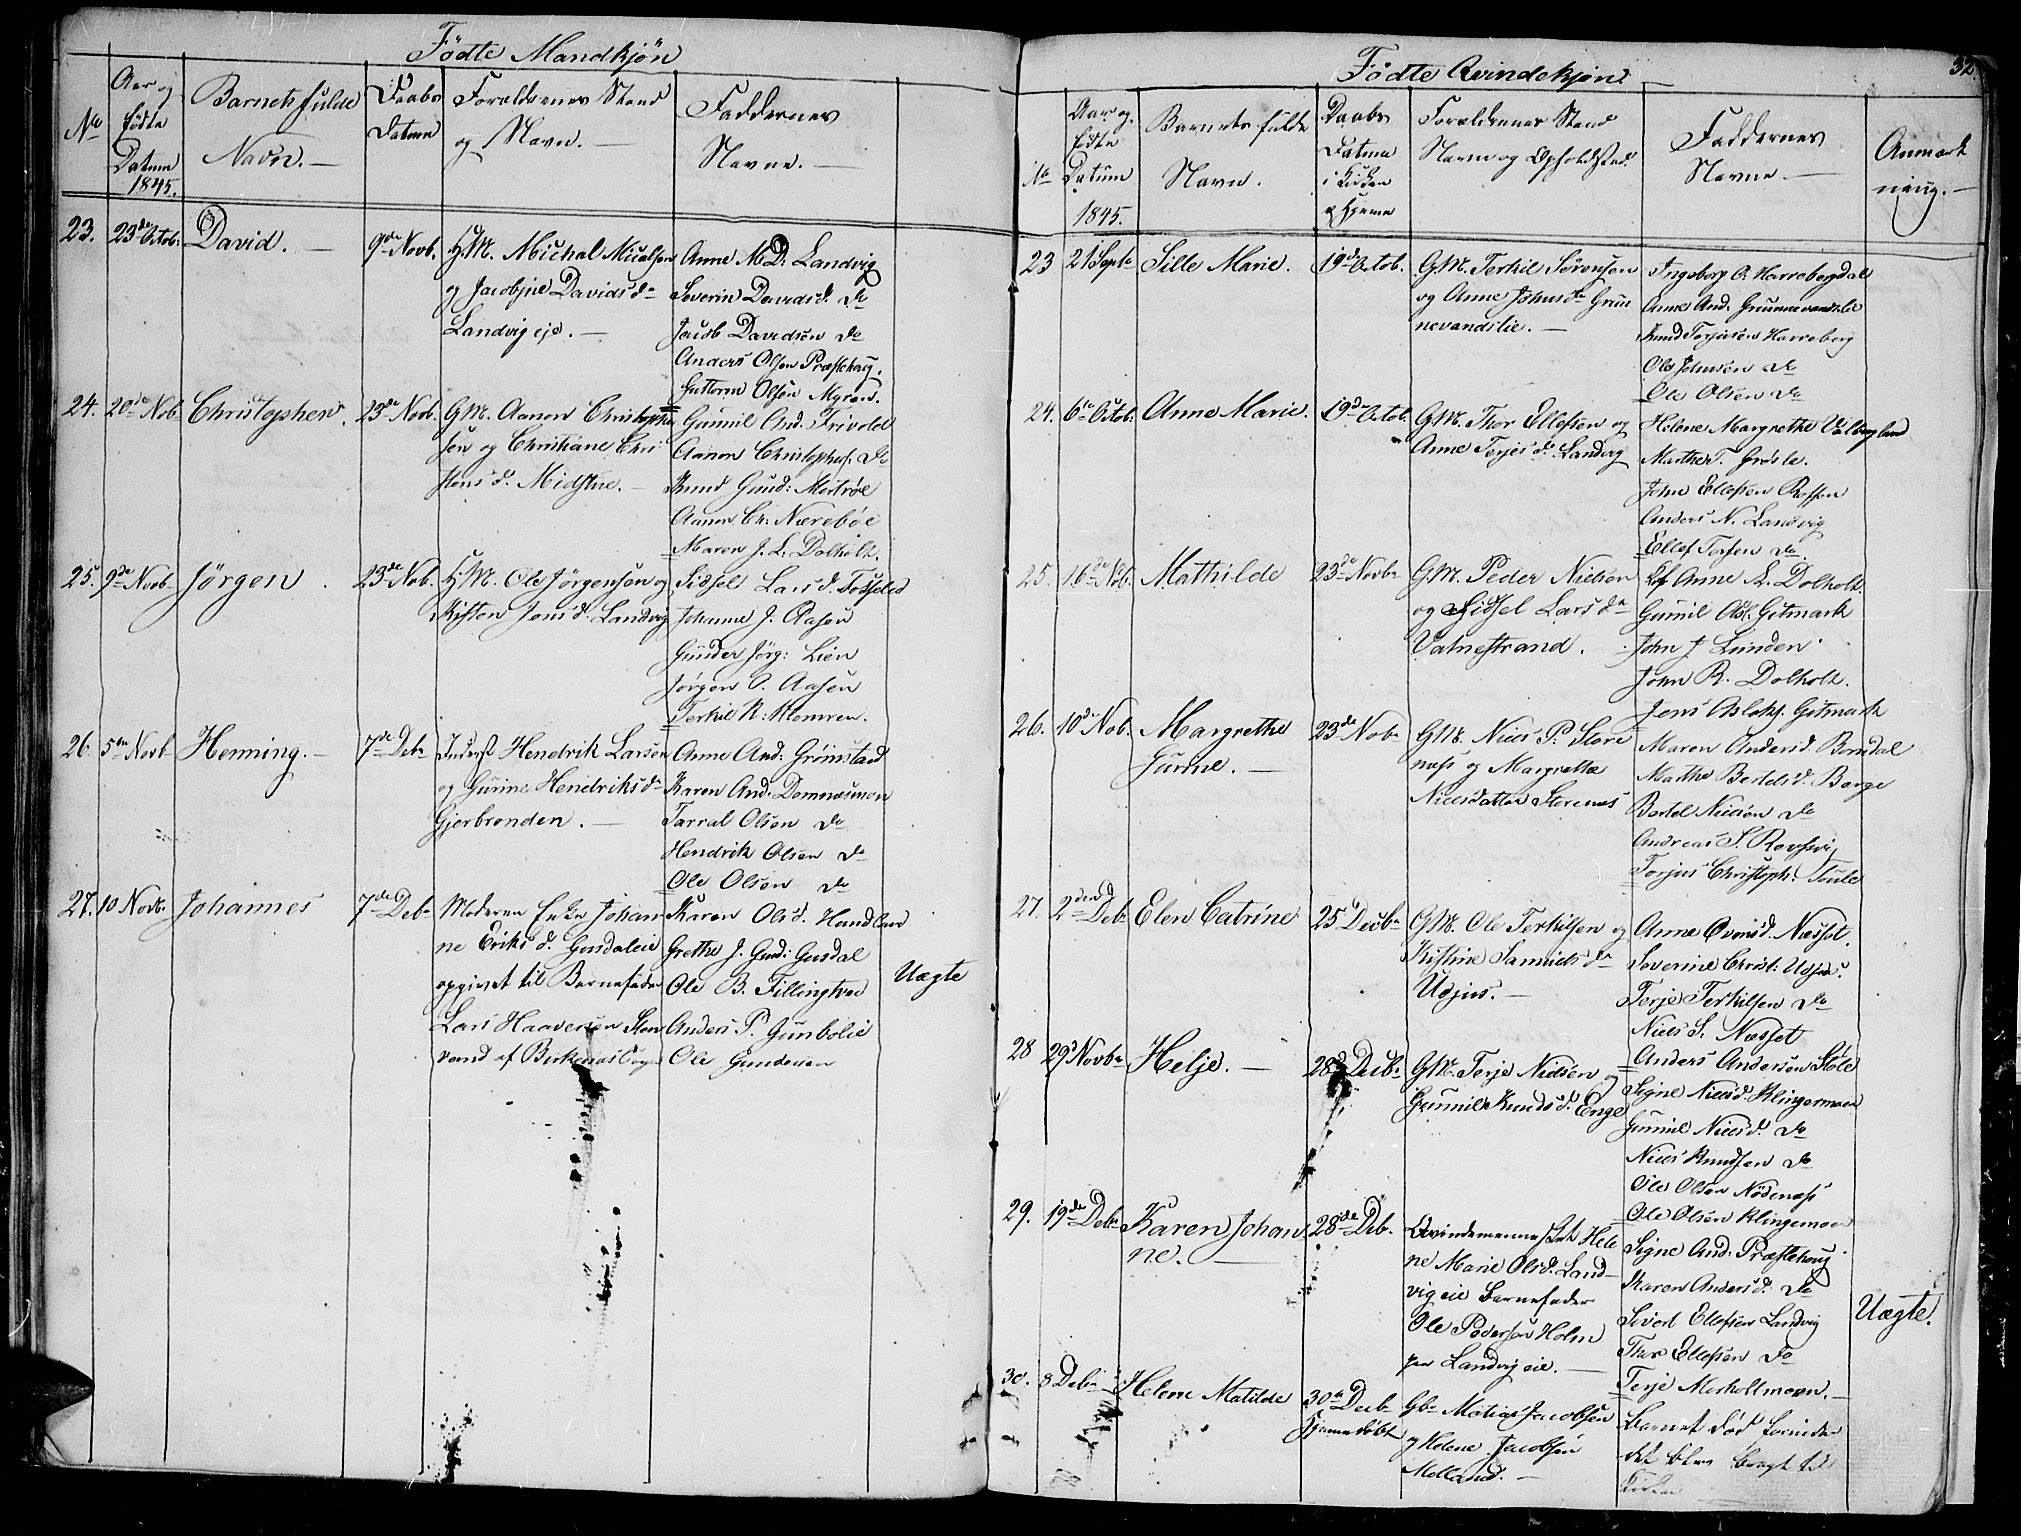 Födte Mandkjön
No
Aar og
födte
Datum
1845.
Barnets fulde
Navn. —
Daabs
Datum
Forældrenes Stand
og Navn. —
Faddernes
Navne. —
23.
23de Octob:
David. —
9de Novb.
G.M. Michal
og Jacobine Davidsd-
Landvig eje. —
Anne M D: Landvig
Severin Davidsd. do
Jacob Davidsön do
Anders Olsen Præstehaug.
Guttorm Olsön Myren.
24.
20de Nob
Christopher.
23de Novb.
G.M. Aanon Christophe
sen og Christiane Chri
stens d. Midtue. —
Gunnil And. Frivold
Aanon Christophers. do
Knud Gund:
Aanon Ch: Næreböe
Maren J. L. Dolholt.
25.
9de Novb
Jörgen.
23de Nob.
G.M. Ole Jörgensen og
Kisten Jens d. Landvig
Sidsel Lars d.
Johanne J. Aasen
Gunder Jörg: Lien
Jörgen O. Aasen
Terkil K:
26.
5te Novb
Henning. —
7de Deb-
Inderst Hendrik Larsen
og Gurine Hendriksd-
Gjerbronden. —
Anne And: Grömstad
Karen And: Domnesmoen
Tarral Olsen do
Hendrik Olsen do
Ole Olsen do
27.
10 Novb.
Johannes
7de Deb-
Moderen Enke Johan
ne Eriks d.
opgivet til Barnefader
Lars Haaversen Sten
vand af Birkenæs Sogn
Karen Olsd.
Grethe J. Gund: Gusdal
Ole B. Fillingtvei
Anders P. Gunbolie
Ole Gundesen
Uægte
32
Födte Qvindekjön
No
Aar og
födte
Datum
1845.
Barnets fulde
Navn.
Daabs
Datum
i Kirken
og hjemme
Forældrenes Stand
Navn og Opholdsted
Faddernes
Navne —
Anmærk
ning. —
23
21 Septe
Sille Marie.
19de Octob.
G.M. Terkil Sörensen
og Anne Johnsd- Grun
nevandslie. —
Ingeborg O. Harrebergdal
Anne And. Grunnevandslie
Knud Torjusen Harreberg
Ole Johnsen do
Ole Olsen do
24.
6te Octob.
Anne Marie.
19de Octob.
G.M. Thor Ellefsen og
Anne Terjes d. Landvig
Helene Margrethe
Marthe T. Grösle.
John Ellefsen
Anders N. Landvig
Ellef Torsen do
25.
16de Nob.
Mathilde
23de Novb-
G.M. Peder Nielsen
og Sidsel Lars d-
Vatnestrand.
Anne L. Dolholt.
Gunnil Asl. Gitmark
John J Lunden
John R. Dolholt.
Jens Aslaks. Gitmark
26.
10de Nob.
Margrethe
Gurine. —
23de Nob-
G.M. Niels P. Store
næs og Margrethe
Nielsdatter Storenæs
Maren Andersd.
Marthe Bertelsd. Berge
Bertel Nielsön do
Andreas S.
Torjus Christoph:
27.
2den Deb-
Elen Catrine
25 Decb-
G.M. Ole Terkilsen og
Kistine Samuels d-
Udjus. —
Anne Evensd. Næsset.
Severine Christ: Udjus.
Terje Terkilsen do
Niels S. Næsset
28
29de Novb-
Helje. —
28de Decb-
G.M. Terje Nielsen og
Gunnild Knuds d. Enge
Anders Andersen Stöle
Signe Nielsd. Klingermoen
Gunnil Nielsd. do
Niels Knudsen do
Ole Olsen Nödenæs
Ole Olsen Klingemoen
29.
19de Deb-
Karen Johan
ne. —
28de Deb-
Qvindemennesket Hele
ne Marie Olsd. Land-
vig eie Barnefader
Ole Pedersen Holm
paa Landvig eie. —
Signe And: Præstehaug
Karen Andersd. do
Sivert Ellefsen Landvig
Thor Ellefsen do
Terje
Uægte.
30.
8 Deb-
Helene Matilde
30te Decb-
hjemmedöbt
Gb- Matias Jacobsen
og Helene Jacobsen
Molland. —
Barnet död forinden
det blev bragt til
Kirken